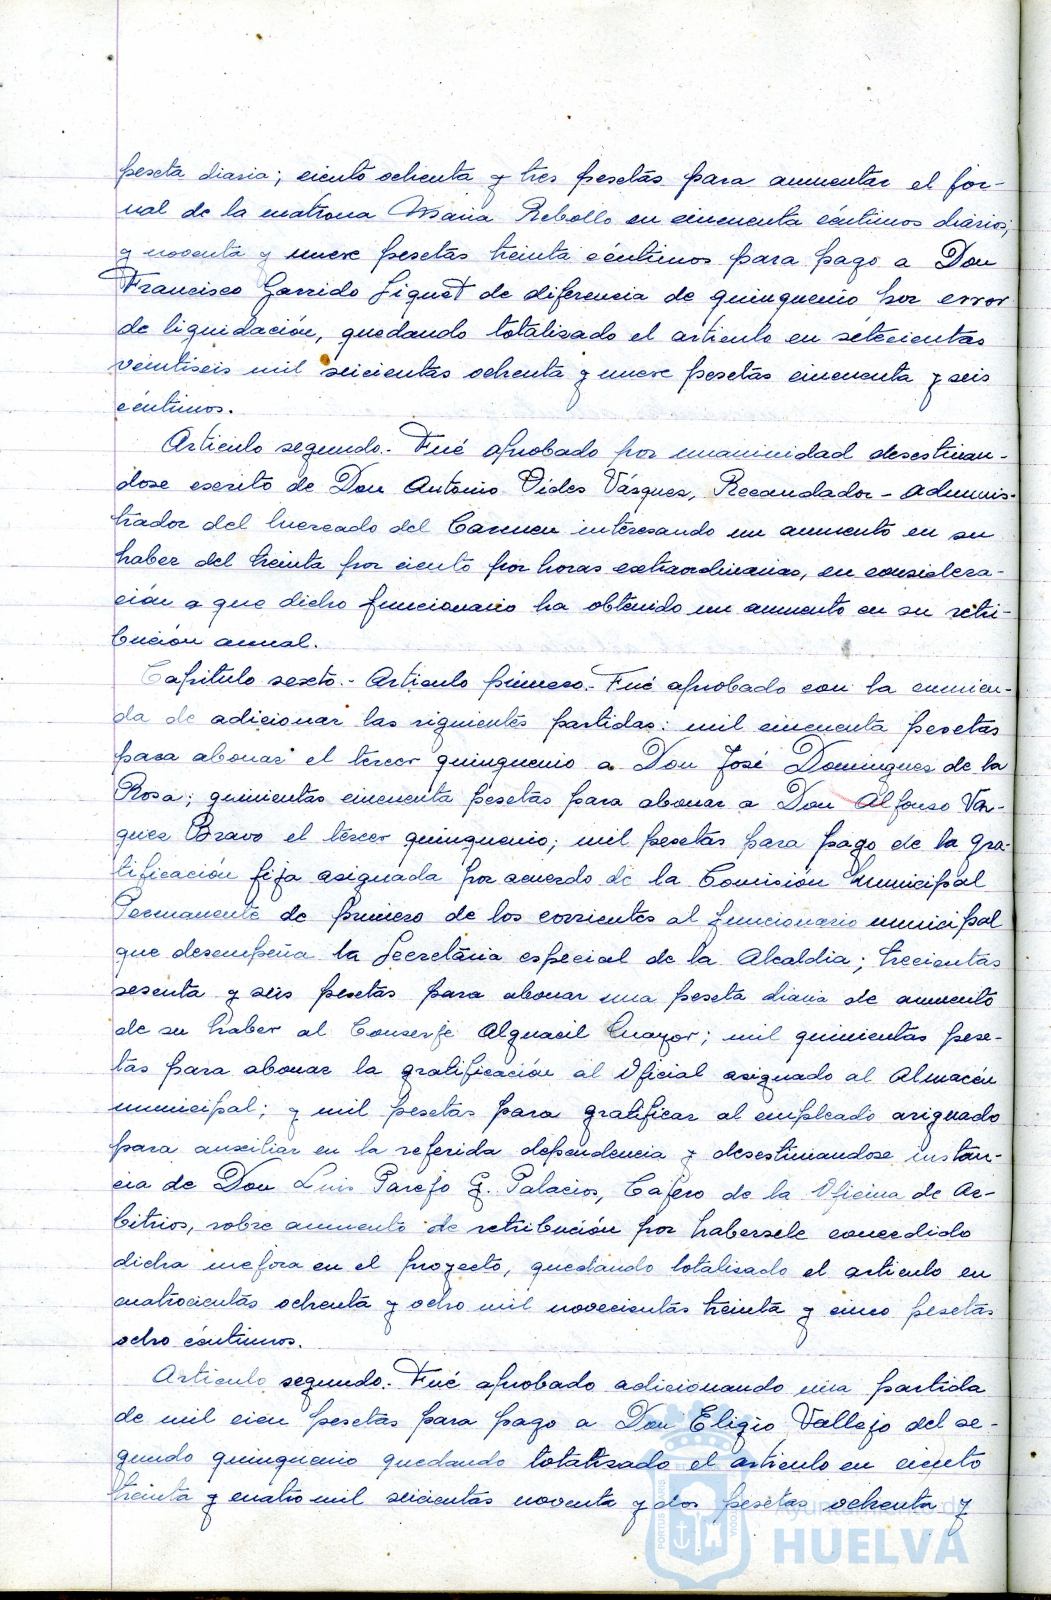 peseta diaria; ciento ochenta y tres pesetas para aumentar el jor-
nal de la matrona Maria Rebollo en cincuenta céntimos diarios;
y noventa y nueve pesetas treinta céntimos para pago a Don
Francisco Garrido Liguet de diferencia de quinquenio por error
de liquidación, quedando totalizado el articulo en setecientas
veintiseis mil seiscientas ochenta y nueve pesetas cincuenta y seis
céntimos.
Articulo segundo.- Fué aprobado por unanimidad desestiman-
dose escrito de Don Antonio Vides Vásquez, Recaudador-adminis-
trador del Mercado del Carmen interesando un aumento en su
haber del treinta por ciento por horas extraordinarias, en considera-
ción a que dicho funcionario ha obtenido un aumento en su retri-
bución anual.
Capitulo sexto.- Articulo primero.- Fué aprobado con la enmien-
da de adicionar las siguientes partidas: mil cincuenta pesetas
para abonar el tercer quinquenio a Don José Dominguez de la
Rosa; quinientas cincuenta pesetas para abonar a Don Alfonso Vaz-
quez Bravo el tercer quinquenio; mil pesetas para pago de la gra-
tificación fija asignada por acuerdo de la Comisión Municipal
Permanente de primero de los corrientes al funcionario municipal
que desempeña la Secretaria especial de la Alcaldia; trecientas
sesenta y seis pesetas para abonar una peseta diaria de aumento
de su haber al Conserje Alguacil Mayor; mil quinientas pese-
tas para abonar la gratificación al Oficial asignado al Almacén
municipal; y mil pesetas para gratificar al empleado asignado
para auxiliar en la referida dependencia y desestimandose instan-
cia de Don Luis Parejo G. Palacios, Cajero de la Oficina de Ar-
bitrios, sobre aumento de retribución por habersele concedido
dicha mejora en el proyecto, quedando totalizado el articulo en
cuatrocientas ochenta y ocho mil novecientas treinta y cinco pesetas
ocho céntimos.
Articulo segundo.- Fué aprobado adicionando una partida
de mil cien pesetas para pago a Don Eligio Vallejo del se-
gundo quinquenio quedando totalizado el articulo en ciento
treinta y cuatro mil seicientas noventa y dos pesetas ochenta y
Ayuntamiento de
HUELVA